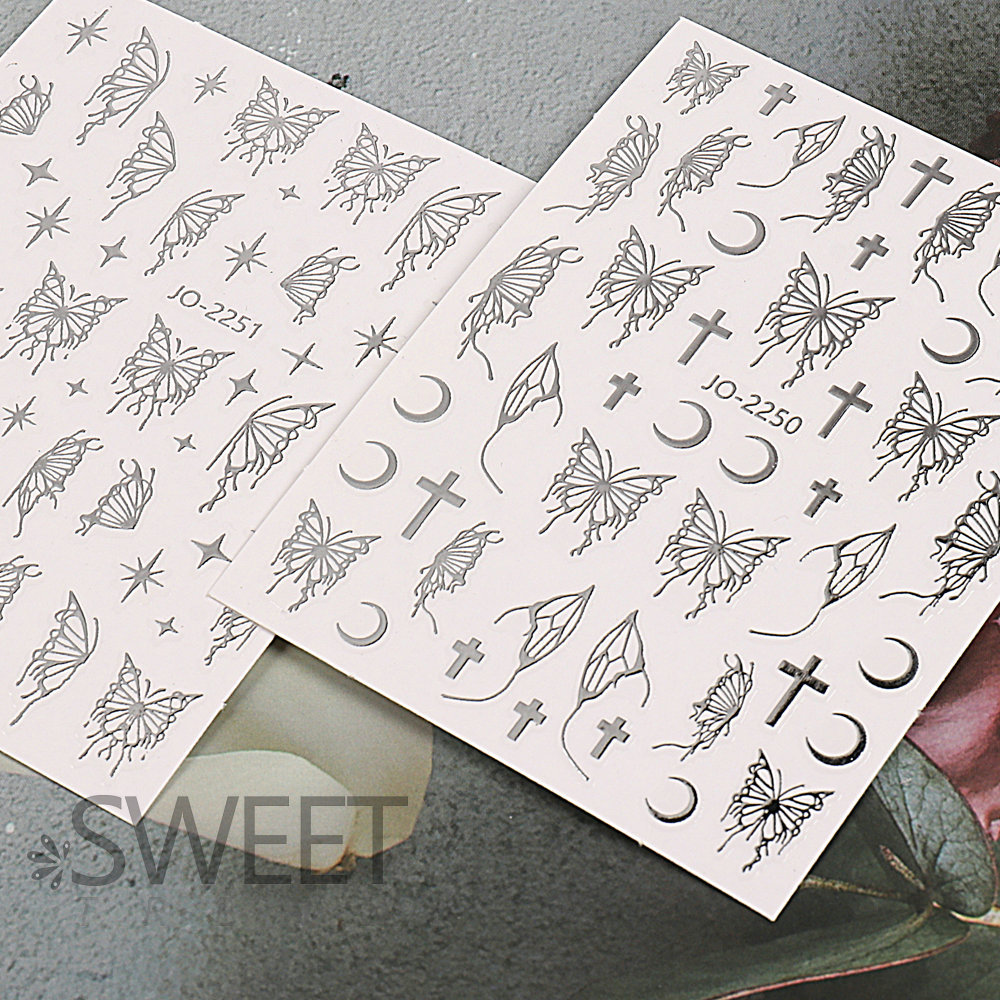 JO-2251
JO-2250
SWEET